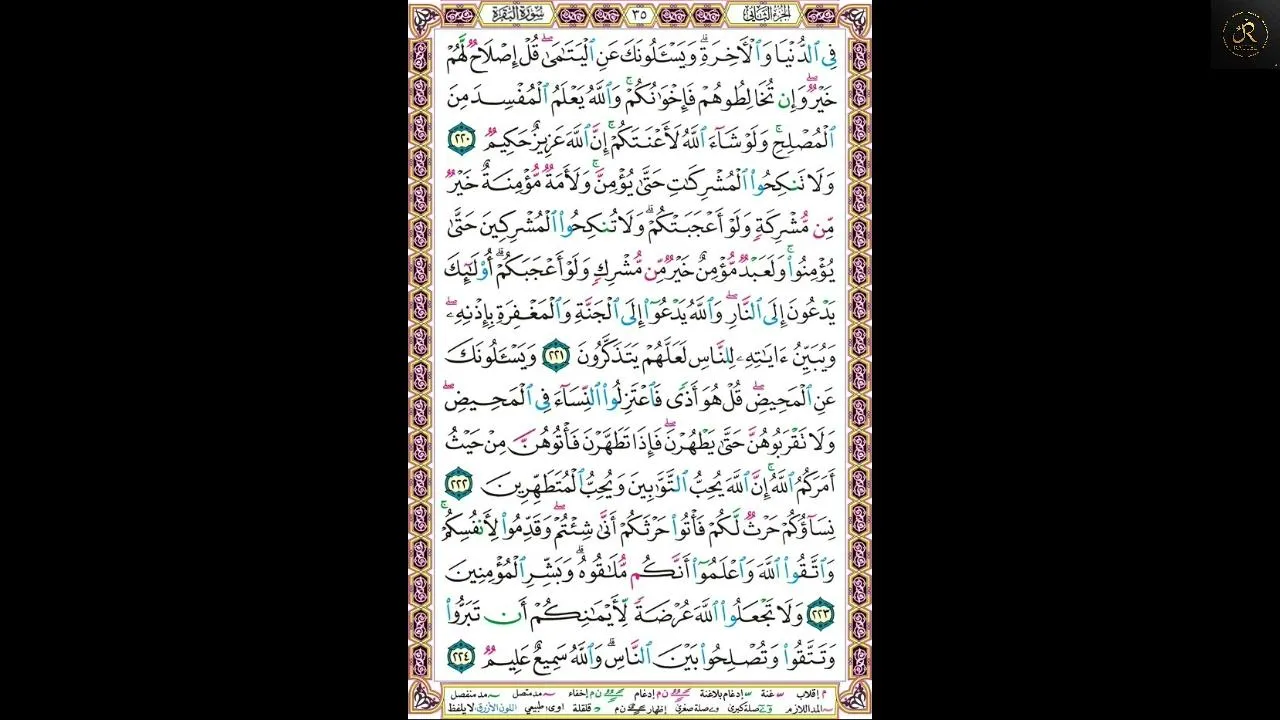 الجزء الثاني ٣٥ سورة البقرة
فِى الدُّنْيَا وَالْأَخِرَةِ ۗ وَيَسْـَٔلُونَكَ عَنِ الْيَتَامَىٰ ۖ قُلْ إِصْلَاحٌ لَّهُمْ
خَيْرٌ ۖ وَإِن تُخَالِطُوهُمْ فَإِخْوَانُكُمْ ۚ وَاللَّهُ يَعْلَمُ الْمُفْسِدَ مِنَ
الْمُصْلِحِ ۚ وَلَوْ شَآءَ اللَّهُ لَأَعْنَتَكُمْ ۚ إِنَّ اللَّهَ عَزِيزٌ حَكِيمٌ ٢٢٠
وَلَا تَنكِحُوا الْمُشْرِكَٰتِ حَتَّىٰ يُؤْمِنَّ ۚ وَلَأَمَةٌ مُّؤْمِنَةٌ خَيْرٌ
مِّن مُّشْرِكَةٍ وَلَوْ أَعْجَبَتْكُمْ ۗ وَلَا تُنكِحُوا الْمُشْرِكِينَ حَتَّىٰ
يُؤْمِنُوا ۚ وَلَعَبْدٌ مُّؤْمِنٌ خَيْرٌ مِّن مُّشْرِكٍ وَلَوْ أَعْجَبَكُمْ ۗ أُوْلَٰٓئِكَ
يَدْعُونَ إِلَى النَّارِ ۖ وَاللَّهُ يَدْعُوٓا إِلَى الْجَنَّةِ وَالْمَغْفِرَةِ بِإِذْنِهِۦ ۖ
وَيُبَيِّنُ ءَايَٰتِهِۦ لِلنَّاسِ لَعَلَّهُمْ يَتَذَكَّرُونَ ٢٢١ وَيَسْـَٔلُونَكَ
عَنِ الْمَحِيضِ ۖ قُلْ هُوَ أَذًى فَاعْتَزِلُوا النِّسَآءَ فِى الْمَحِيضِ ۖ
وَلَا تَقْرَبُوهُنَّ حَتَّىٰ يَطْهُرْنَ ۖ فَإِذَا تَطَهَّرْنَ فَأْتُوهُنَّ مِنْ حَيْثُ
أَمَرَكُمُ اللَّهُ ۚ إِنَّ اللَّهَ يُحِبُّ التَّوَّٰبِينَ وَيُحِبُّ الْمُتَطَهِّرِينَ ٢٢٢
نِسَآؤُكُمْ حَرْثٌ لَّكُمْ فَأْتُوا حَرْثَكُمْ أَنَّىٰ شِئْتُمْ ۖ وَقَدِّمُوا لِأَنفُسِكُمْ ۚ
وَاتَّقُوا اللَّهَ وَاعْلَمُوٓا أَنَّكُم مُّلَٰقُوهُ ۗ وَبَشِّرِ الْمُؤْمِنِينَ
٢٢٣ وَلَا تَجْعَلُوا اللَّهَ عُرْضَةً لِّأَيْمَٰنِكُمْ أَن تَبَرُّوا
وَتَتَّقُوا وَتُصْلِحُوا بَيْنَ النَّاسِ ۗ وَاللَّهُ سَمِيعٌ عَلِيمٌ ٢٢٤
م إقلاب غنة إدغام بلاغنة ن م إدغام ن م إخفاء مد متصل مد منفصل
المد اللازم صلة كبرى صلة صغرى إظهار ن م قلقلة اوى طبيعي اللون الأزرق لا يلفظ